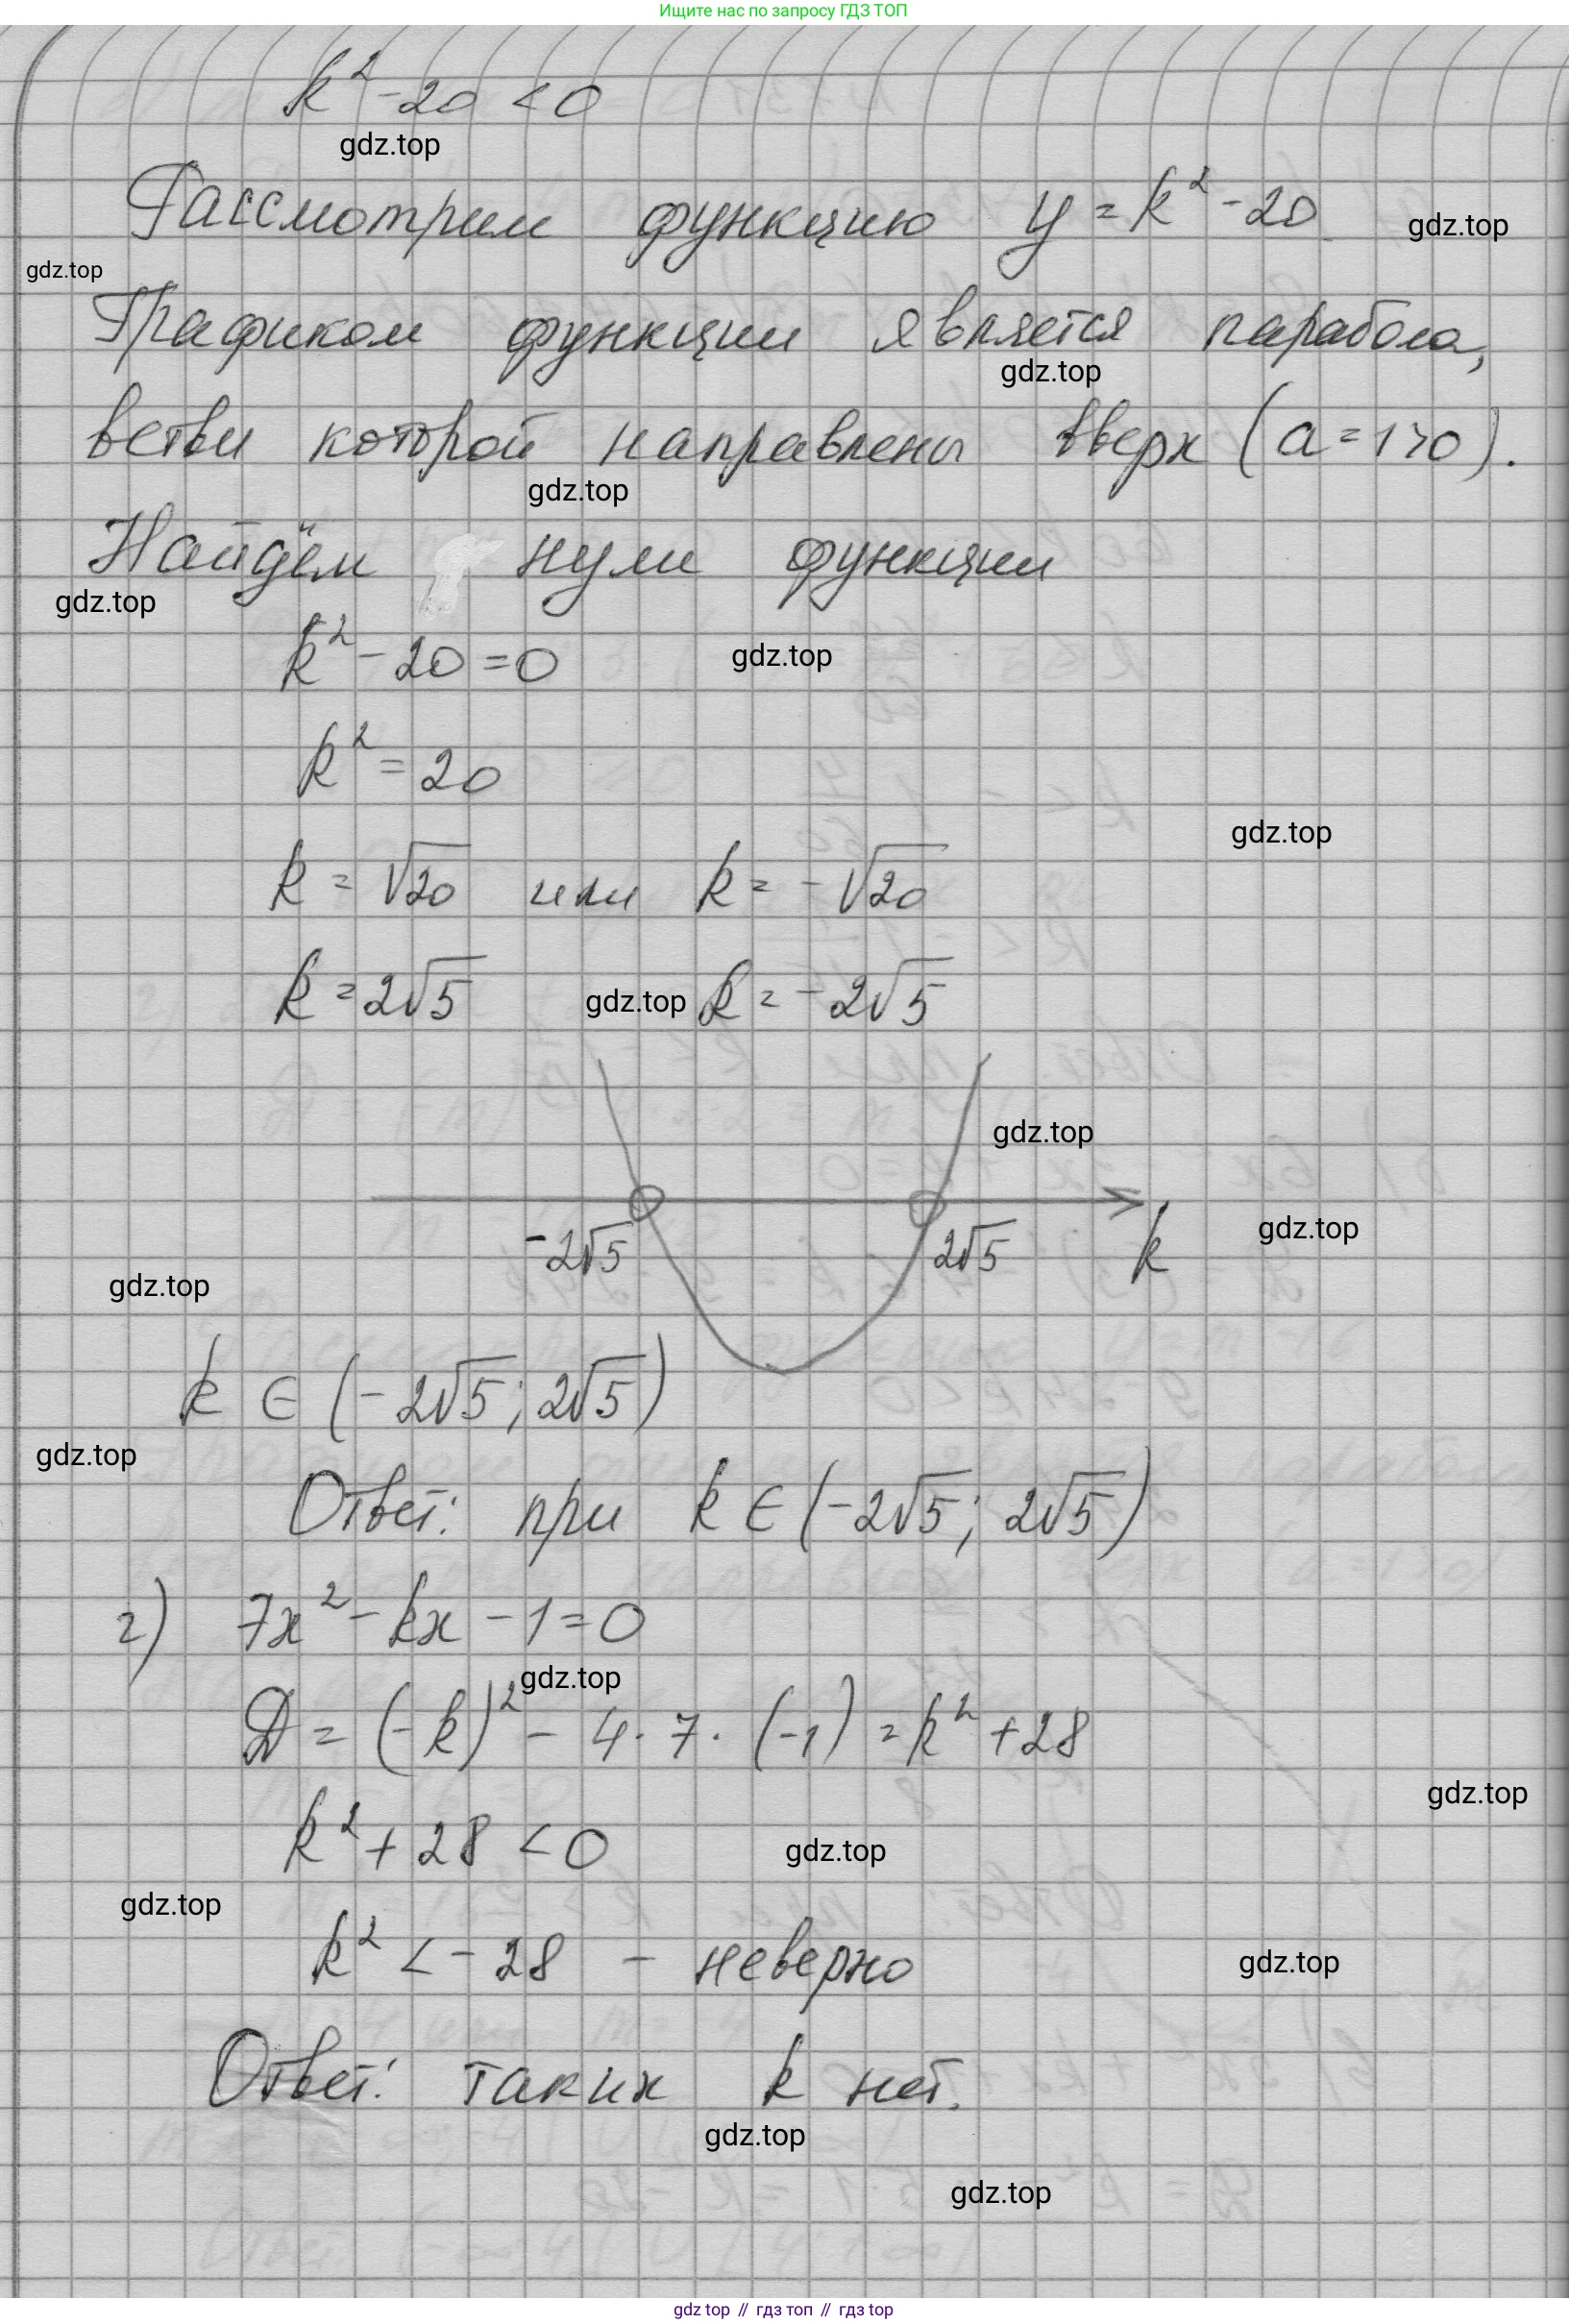 Ищите нас по запросу ГДЗ ТОП
k² - 20 < 0
gdz.top
Рассмотрим функцию y = k² - 20.
gdz.top
gdz.top
Графиком функции является парабола,
gdz.top
ветви которой направлены вверх (a = 1 > 0).
gdz.top
Найдём нули функции
gdz.top
k² - 20 = 0
gdz.top
k² = 20
gdz.top
k = √20 или k = -√20
k = 2√5 gdz.top k = -2√5
gdz.top
-2√5 2√5 k
gdz.top
gdz.top
k ∈ (-2√5; 2√5)
gdz.top
Ответ: при k ∈ (-2√5; 2√5)
г) 7x² - kx - 1 = 0
gdz.top
D = (-k)² - 4 · 7 · (-1) = k² + 28
gdz.top
k² + 28 < 0
gdz.top
gdz.top
k² < -28 - неверно
gdz.top
Ответ: таких k нет.
gdz.top
gdz.top
gdz top // гдз топ // гдз top